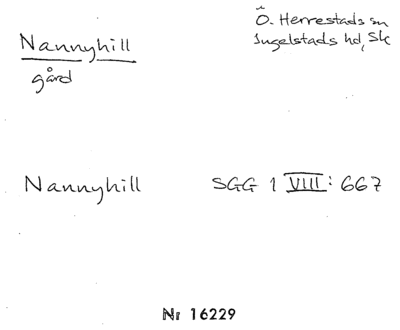 Nannyhill
gård
Ö. Herrestads sn
Ingelstads hd, Sk
Nannyhill SGG 1 VIII: 667
Nr 16229